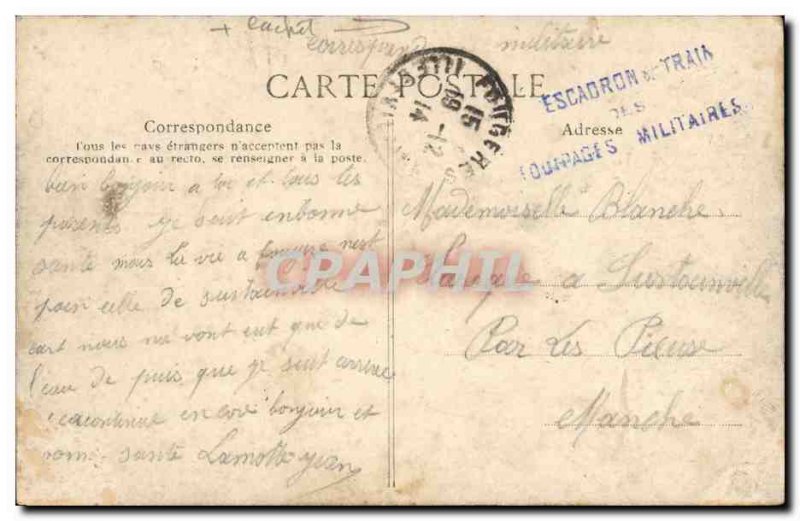 + cachet
correspand militaire
CARTE POSTALE
FOUGERES
ILLE
15
19 -12
14
ESCADRON DU TRAIN
DES
EQUIPAGES MILITAIRES
Correspondance
Tous les pays étrangers n'acceptent pas la
correspondance au recto, se renseigner à la poste.
Adresse
bien bonjour a toi et tous les
parents ge suit enbonne
santé mais la vie a fougere nest
pain celle de
cart nous ne vont but que de
l'eau de puis que ge suit arrive
encore bonjour et
bonne santé Lamotte yvan
Mademoiselle Blanche
a Surtainville
Par Les Pieuse
Manche
CPAPHIL